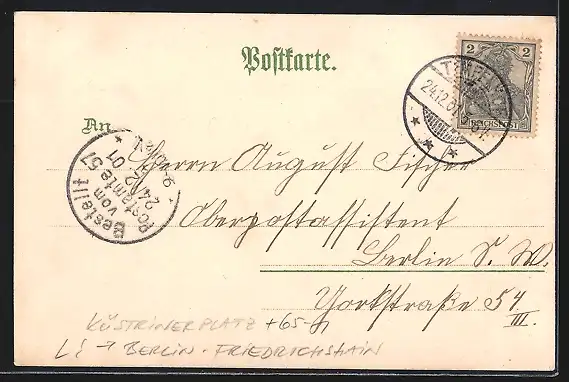 Postkarte.
2
REICHSPOST
24.12.01
An
Bestellt
vom
Postamte 57
24/12
01
Herrn August Fischer
Oberpostassistent
Berlin S. W.
Yorkstraße 54
III.
KÜSTRINER PLATZ +65-
→ BERLIN-FRIEDRICHSHAIN